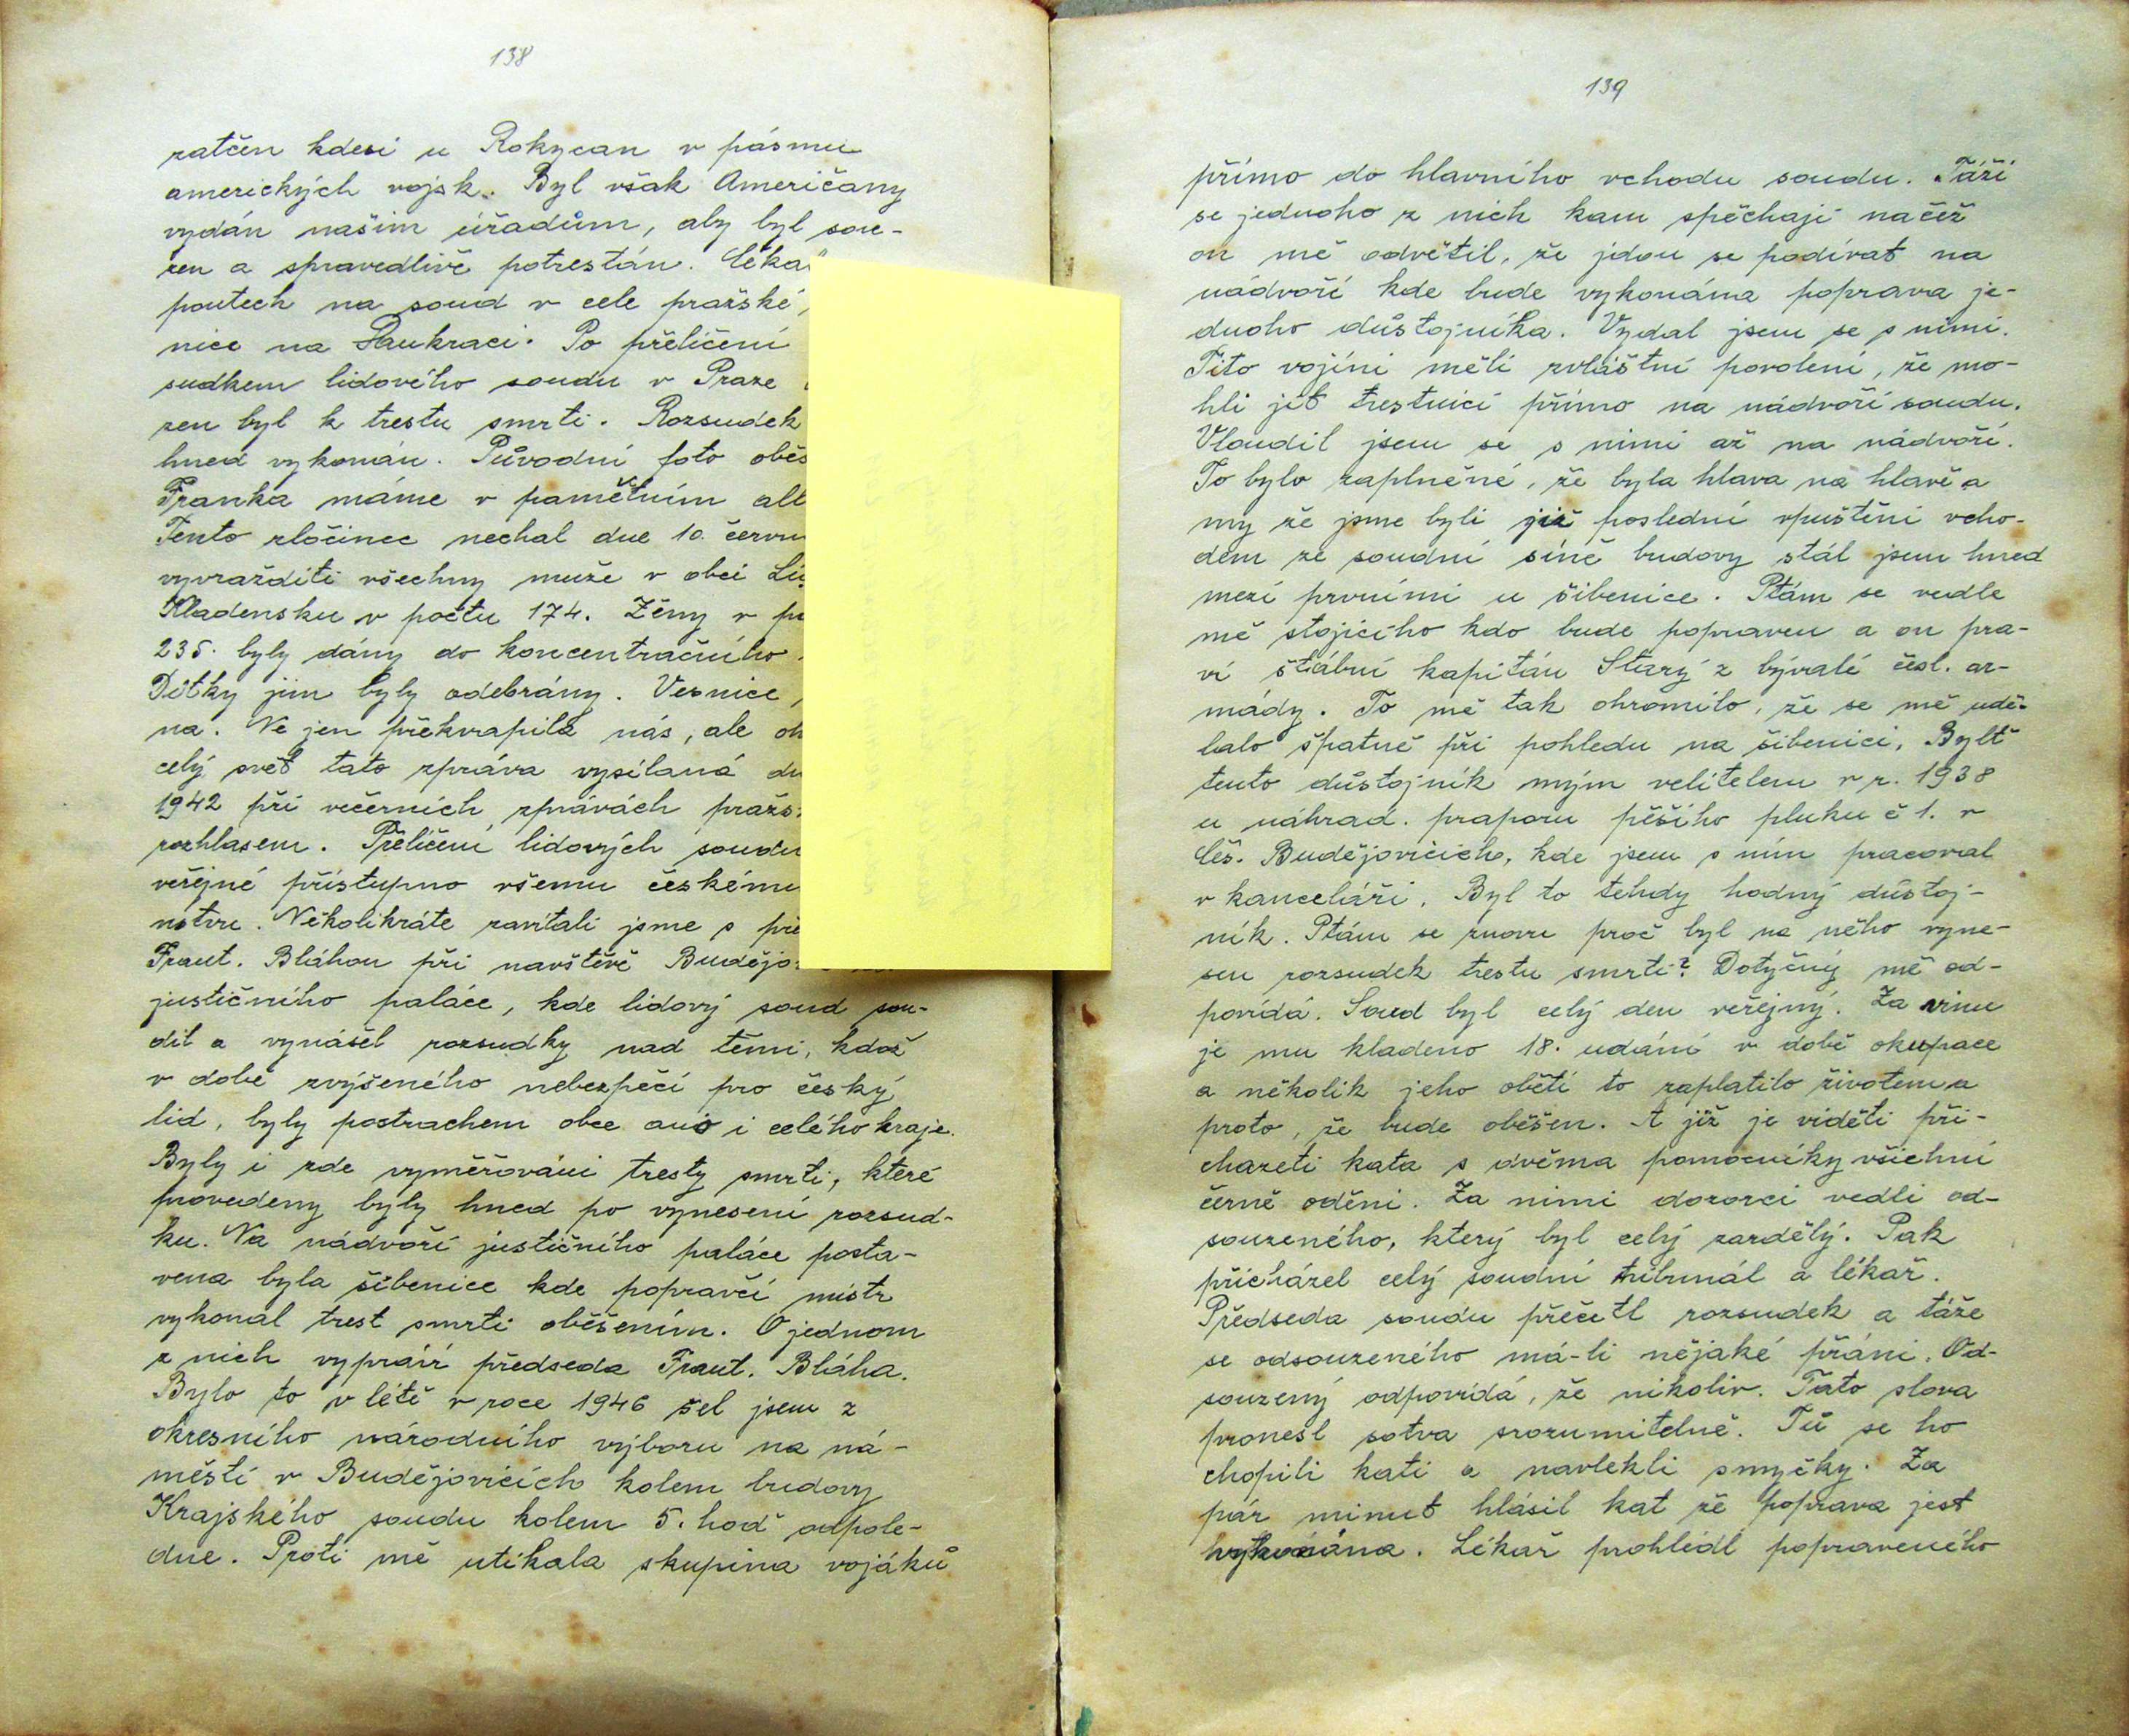 138
ratčen kdesi u Rokycan v pásmu
amerických vojsk. Byl však Američany
vydán našim úřadům, aby byl sou-
zen a spravedlivě potrestán. Čekal
poutech na soud v cele pražské
nice na Pankraci. Po přelíčení
sudkem lidového soudu v Praze
zen byl k trestu smrti. Rozsudek
hned vykonán. Původní foto oběš
Franka máme v pamětním alb
Tento zločinec nechal dne 10. červn
vyvražditi všechny muže v obci Li
Kladensku v počtu 174. Ženy v po
235. byly dány do koncentračního
Dětky jim byly odebrány. Vesnice
na. Ne jen překvapila nás, ale oh
celý svět tato zpráva vysílaná dn
1942 při večerních zprávách pražs
rozhlasem. Přelíčení lidových soudu
veřejné přístupno všemu českému
nstvu. Několikráte zavítali jsme s pře
Frant. Bláhou při navštěvě Budějo
justičního paláce, kde lidový soud sou-
dil a vynášel rozsudky nad těmi, kdož
v době zvýšeného nebezpečí pro český
lid, byly postrachem obce ano i celého kraje.
Byly i zde vyměřováni tresty smrti, které
provedeny byly hned po vynesení rozsud-
ku. Na nádvoří justičního paláce posta-
vena byla šibenice kde popravčí mistr
vykonal trest smrti oběšením. O jednom
z nich vypráví předseda Frant. Bláha.
Bylo to v létě v roce 1946 šel jsem z
okresního národního výboru na ná-
městí v Budějovicích kolem budovy
Krajského soudu kolem 5. hod odpole-
dne. Proti mě utíkala skupina vojáků
139
přímo do hlavního vchodu soudu. Táži
se jednoho z nich kam spěchají načež
on mě odvětil, že jdou se podívat na
nádvoří kde bude vykonána poprava je-
dnoho důstojníka. Vydal jsem se s nimi.
Tito vojíni měli zvláštní povolení, že mo-
hli jít trestnicí přímo na nádvoří soudu.
Vloudil jsem se s nimi až na nádvoří.
To bylo zaplněné, že byla hlava na hlavě a
my že jsme byli již poslední vpuštěni vcho-
dem ze soudní síně budovy stál jsem hned
mezi prvními u šibenice. Ptám se vedle
mě stojícího kdo bude popraven a on pra-
ví štábní kapitán Starý z bývalé čsl. ar-
mády. To mě tak ohromilo, že se mě udě-
lalo špatně při pohledu na šibenici. Bylť
tento důstojník mým velitelem v r. 1938
u náhrad. praporu pěšího pluku č 1. v
Čes. Budějovicích, kde jsem s ním pracoval
v kanceláři. Byl to tehdy hodný důstoj-
ník. Ptám se znovu proč byl na něho vyne-
sen rozsudek trestu smrti? Dotyčný mě od-
povídá. Soud byl celý den veřejný. Za vinu
je mu kladeno 18. udání v době okupace
a několik jeho obětí to zaplatilo životem a
proto, že bude oběšen. A již je viděti při-
chazeti kata s dvěma pomocníky všichni
černě oděni. Za nimi dozorci vedli od-
souzeného, který byl celý zardělý. Pak
přicházel celý soudní tribunál a lékař.
Předseda soudu přečetl rozsudek a táže
se odsouzeného má-li nějaké přání. Od-
souzený odpovídá, že nikoliv. Tato slova
pronesl sotva srozumitelně. Tu se ho
chopili kati a navlekli smyčky. Za
pár minut hlásil kat že poprava jest
vykonána. Lékař prohlédl popraveného